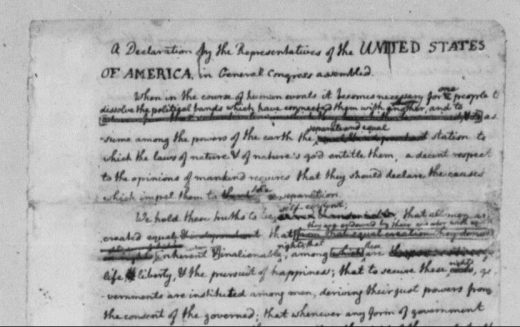 A Declaration by the Representatives of the UNITED STATES
OF AMERICA, in General Congress assembled.
When in the course of human events it becomes necessary for one people to
dissolve the political bands which have connected them with another, and to
as
separate and equal
sume among the powers of the earth the station to
which the laws of nature & of nature's god entitle them, a decent respect
to the opinions of mankind requires that they should declare the causes
which impel them to the separation.
self-evident;
We hold these truths to be that all men are
they are endowed by their creator with
created equal & independent that
rights; that these
inherent & inalienable among which are
life & liberty, & the pursuit of happiness; that to secure these rights, go
vernments are instituted among men, deriving their just powers from
the consent of the governed; that whenever any form of government